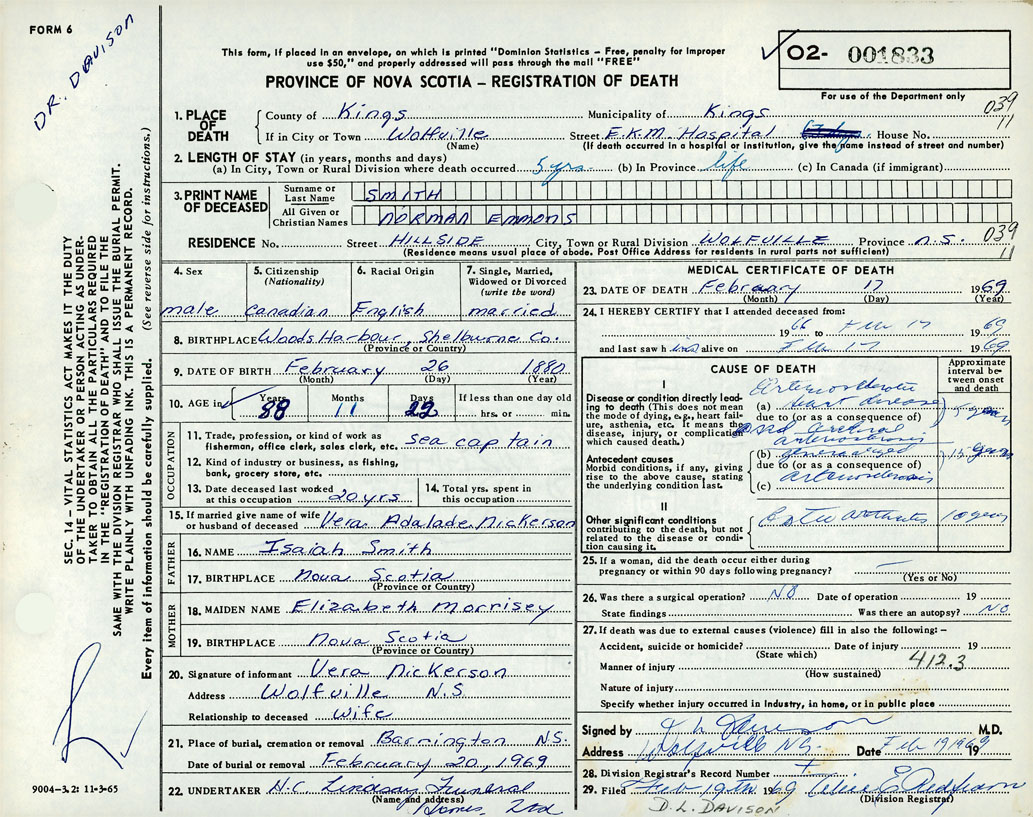 FORM 6
DR. DAVISON
This form, if placed in an envelope, on which is printed "Dominion Statistics – Free, penalty for improper
use $50," and properly addressed will pass through the mail "FREE"
PROVINCE OF NOVA SCOTIA – REGISTRATION OF DEATH
02- 001833
For use of the Department only
039
11
1. PLACE OF DEATH County of Kings Municipality of Kings
If in City or Town Wolfville Street E.K.M. Hospital House No.
(Name) (If death occurred in a hospital or institution, give the name instead of street and number)
2. LENGTH OF STAY (in years, months and days)
(a) In City, Town or Rural Division where death occurred 5 yrs. (b) In Province life (c) In Canada (if immigrant)
3. PRINT NAME OF DECEASED
Surname or Last Name SMITH
All Given or Christian Names NORMAN EMMONS
RESIDENCE No. Street HILLSIDE City, Town or Rural Division WOLFVILLE Province N.S. 039
11
(Residence means usual place of abode. Post Office Address for residents in rural parts not sufficient)
4. Sex male
5. Citizenship (Nationality) Canadian
6. Racial Origin English
7. Single, Married, Widowed or Divorced (write the word) married
8. BIRTHPLACE Woods Harbour, Shelburne Co.
(Province or Country)
9. DATE OF BIRTH February 26 1880
(Month) (Day) (Year)
10. AGE in Years 88 Months 11 Days 22 If less than one day old
hrs. or min.
OCCUPATION
11. Trade, profession, or kind of work as
fisherman, office clerk, sales clerk, etc. sea captain
12. Kind of industry or business, as fishing,
bank, grocery store, etc.
13. Date deceased last worked
at this occupation 20 yrs
14. Total yrs. spent in
this occupation
15. If married give name of wife
or husband of deceased Vera Adalade Nickerson
FATHER
16. NAME Isaiah Smith
17. BIRTHPLACE Nova Scotia
(Province or Country)
MOTHER
18. MAIDEN NAME Elizabeth Morrisey
19. BIRTHPLACE Nova Scotia
(Province or Country)
20. Signature of informant Vera Nickerson
Address Wolfville N.S
Relationship to deceased Wife
21. Place of burial, cremation or removal Barrington N.S.
Date of burial or removal February 20, 1969
22. UNDERTAKER H.C. Lindsay Funeral
(Name and address) Homes, Ltd
MEDICAL CERTIFICATE OF DEATH
23. DATE OF DEATH February 17 1969
(Month) (Day) (Year)
24. I HEREBY CERTIFY that I attended deceased from:
1966 to Feb 17 1969
and last saw him alive on Feb 17 1969
CAUSE OF DEATH
Approximate interval between onset and death
I
Disease or condition directly leading to death (This does not mean the mode of dying, e.g., heart failure, asthenia, etc. It means the disease, injury, or complication which caused death.)
(a) Arteriosclerotic heart disease
due to (or as a consequence of)
and cerebral arteriosclerosis
Antecedent causes
Morbid conditions, if any, giving rise to the above cause, stating the underlying condition last.
(b) generalized
due to (or as a consequence of)
arteriosclerosis
(c)
II
Other significant conditions
contributing to the death, but not related to the disease or condition causing it.
Osteo arthritis 10 years
25. If a woman, did the death occur either during
pregnancy or within 90 days following pregnancy?
(Yes or No)
26. Was there a surgical operation? NO Date of operation 19
State findings Was there an autopsy? NO
27. If death was due to external causes (violence) fill in also the following: –
Accident, suicide or homicide? Date of injury 19
(State which)
Manner of injury 412.3
(How sustained)
Nature of injury
Specify whether injury occurred in industry, in home, or in public place
Signed by M.D.
Address Wolfville N.S. Date Feb 19 1969
28. Division Registrar's Record Number
29. Filed Feb 19th 1969
(Division Registrar)
D. L. DAVISON
SEC. 14 – VITAL STATISTICS ACT MAKES IT THE DUTY
OF THE UNDERTAKER OR PERSON ACTING AS UNDER-
TAKER TO OBTAIN ALL THE PARTICULARS REQUIRED
IN THE "REGISTRATION OF DEATH" AND TO FILE THE
SAME WITH THE DIVISION REGISTRAR WHO SHALL ISSUE THE BURIAL PERMIT.
WRITE PLAINLY WITH UNFADING INK. THIS IS A PERMANENT RECORD.
Every item of information should be carefully supplied. (See reverse side for instructions.)
9004-3.2: 11-3-65